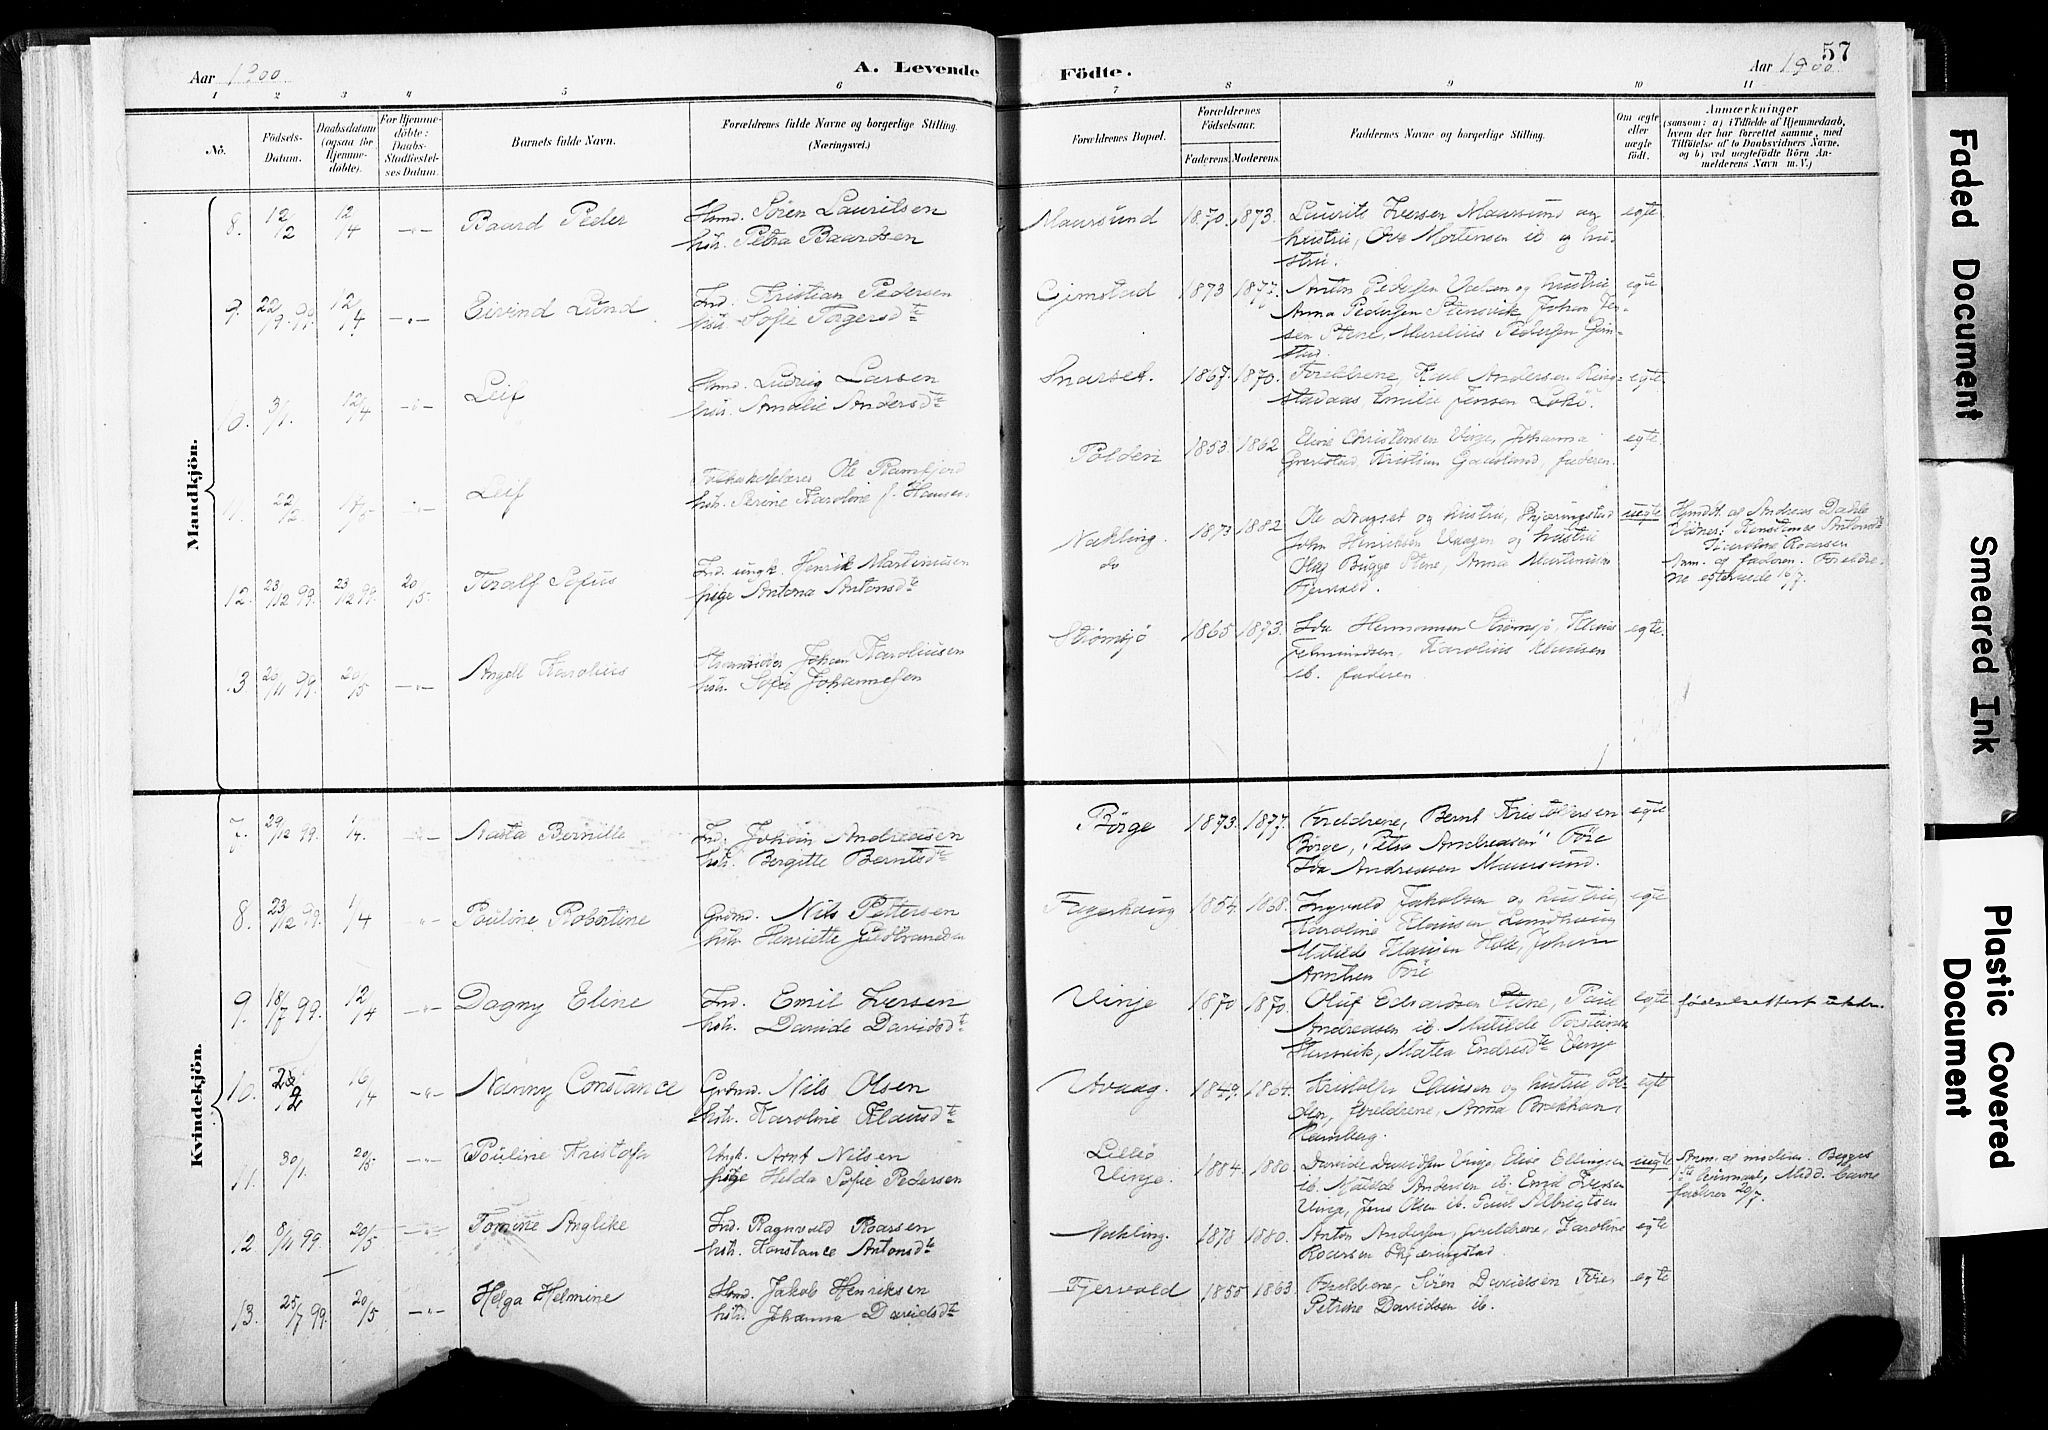 Aar 1900
A. Levende
Födte.
Aar 1900
57
1 2 3 4 5 6 7 8 9 10 11
Nô.
Födsels-
Datum.
Daabsdatum
(ogsaa for
Hjemme-
döbte).
For Hjemme-
döbte:
Daabs-
Stadfæstel-
ses Datum.
Barnets fulde Navn.
Forældrenes fulde Navne og borgerlige Stilling.
(Næringsvei.)
Forældrenes Bopæl.
Forældrenes
Födselsaar.
Faderens. Moderens.
Faddernes Navne og borgerlige Stilling.
Om ægte
eller
uægte
født.
Anmærkninger
(saasom: a) i Tilfælde af Hjemmedaab,
hvem der har forrettet samme, med
Tilföielse af to Daabsvidners Navne,
og b) ved uægtefödte Börn An-
melderens Navn m. V.)
Mandkjön.
8. 12/2 12/4 -"- Baard Peder
Hsmd. Sören Lauritsen
hstr. Petra Baardsen
Maursund 1870. 1873.
Laurits Iversen Maursund og
hustru, Ove Mortensen ib og hu-
stru.
egte
9. 22/9. 99. 12/4 -"- Eivind Lund
Ind. Kristian Pedersen
hstr. Sofie Torgersdtr
Gimstad 1873 1877.
Anton Pedersen og hustru
Anna Pedersen Stensvik, Johan Jen-
sen Stene, Marelius Pedersen Gim-
stad.
egte
10. 3/1. 12/4 -"- Leif
Hsmd. Ludvig Larsen
hstr. Amalie Andersdtr
Snarset. 1867. 1870.
Foreldrene, Karl Andersen Ring-
stadaas, Emilie Jensen
egte.
11. 22/2. 17/5 -"- Leif
Folkeskolelærer Ole Ramfjord
hstr. Serine Karoline f. Hansen
Polden 1853. 1862
Eline Christensen Vinje, Johanna
Grevstad, Kristian faderen.
egte
12. 23/12 99. 23/12 99. 20/5. Toralf Sofus
Ind. ungk. Henrik Martinusen
pige Antona Antonsdtr
Nækling.
do
1873 1882
Ole Dragset og hustru, Skjæringstad
John Henriksen Vaagen og hustru
Olaf Bugge Stene, Anna Martinusen
Fjervold.
uegte
Hjmdt. af Andreas Dahle
Vidner: Konstanse Antonsdtr
Karoline Roarsen
Anm. af faderen. Foreldre-
ne egteviede 16/7.
13 26/11 99. 20/5 -"- Angell Karolius
Strandsidder Johan Karoliusen
hstr. Sofie Johannesen
Strømsjö 1865 1873.
Ida Hermansen Strömsjö,
Karolius Klausen
ib. faderen
egte.
Kvindekjön.
7. 29/12 99. 1/4. -"- Aasta Bernille
Ind. Johan Andreasen
hstr. Bergitte Berntsdtr
Börge 1873. 1877.
Foreldrene, Bernt Kristoffersen
Börge, Petra Andreasen Före
Ida Andreasen Maursund.
egte
8. 23/12 99. 1/4 -"- Pauline Robertine
Grdmd. Nils Pettersen
hstr. Henriette Guldbrandsen
Fagerhaug 1854. 1868.
Ingvald Jakobsen og hustru,
Karoline Klausen Lundhaug
Matilde Klausen Holt, Johan
Arntsen Före
egte
9. 18/7 99. 12/4 -"- Dagny Eline
Ind. Emil Iversen
hstr. Davide Davidsdtr
Vinje 1870 1870.
Oluf Edvardsen Stene, Paul
Andreasen ib. Matilde Torsteinsen
Stensvik, Matea Endresdtr Vinje
egte
födselsattest utstedt.
10. 23/12 16/4 -"- Nanny Constance
Grdmd. Nils Olsen
hstr. Karoline Klausdtr
Avaag. 1849. 1864.
Kristoffer Clausen og hustru Pol-
den, foreldrene, Anna Brekkan,
Ramberg.
egte
11. 30/1. 20/5 -"- Pauline Kristofa
Ungk. Arnt Nilsen
pige Helda Sofie Pedersen
Lillö
Vinje.
1884. 1880.
Davide Davidsen Vinje, Elise Ellingsen
ib. Matilde Andersen ib. Emil Iversen
Vinje, Jens Olsen ib. Paul Albrigtsen
uegte
Anm. af moderen. Begges
1ste leiermaal. Medd. barne
faderen 20/7.
12 8/11 99. 20/5 -"- Tomine Anglike
Ind. Ragnvald Roarsen
hstr. Konstance Antonsdtr
Nækling. 1878 1880.
Anton Andersen, foreldrene, Karoline
Roarsen Skjæringstad.
egte
13. 25/7 99. 20/5 -"- Helga Helmine
Hsmd. Jakob Henriksen
hstr. Johanna Davidsdtr
Fjervold 1855 1863.
Foreldrene, Sören Davidsen Före
Petrine Davidsen ib.
egte
Faded Document
Smeared Ink
Plastic Covered
Document